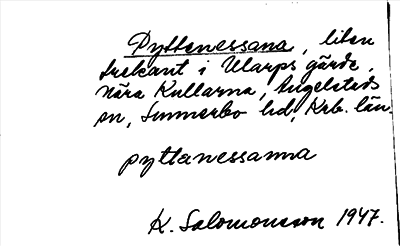 Pyttenessana, liten
trekant i Ularps gärde,
nära Kullarna, Ingelstads
sn, Sunnerbo hd, Krb. län.
pyttanessanna
K. Salomonsson 1947.